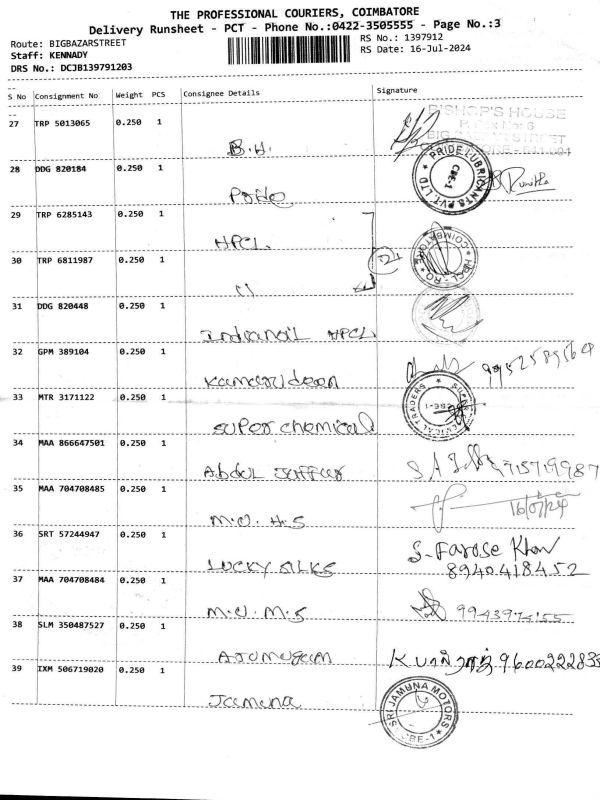 THE PROFESSIONAL COURIERS, COIMBATORE
Delivery Runsheet - PCT - Phone No.:0422-3505555 - Page No.:3
Route: BIGBAZARSTREET
Staff: KENNADY
DRS No.: DCJB139791203
RS No.: 1397912
RS Date: 16-Jul-2024
S No Consignment No Weight PCS Consignee Details Signature
27 TRP 5013065 0.250 1 B.H.
BISHOP'S HOUSE
28 DDG 820184 0.250 1 Pride
PRIDE LUBRICANTS PVT. LTD CBE-1
29 TRP 6285143 0.250 1 HPCL
30 TRP 6811987 0.250 1 "
HPCL - RO COIMBATORE
31 DDG 820448 0.250 1 Indianoil HPCL
32 GPM 389104 0.250 1 Kamarudeen
33 MTR 3171122 0.250 1 Super chemical
CHEMICAL TRADERS CBE-1
34 MAA 866647501 0.250 1 Abdul Jaffar
35 MAA 704708485 0.250 1 M.U.H.S
16/07/24
36 SRT 57244947 0.250 1 LUCKY SILKS
S-Farose Khan
8940418452
37 MAA 704708484 0.250 1 M.U.M.S
38 SLM 350487527 0.250 1
39 IXM 506719020 0.250 1 Jamuna
SRI JAMUNA MOTORS CBE-1